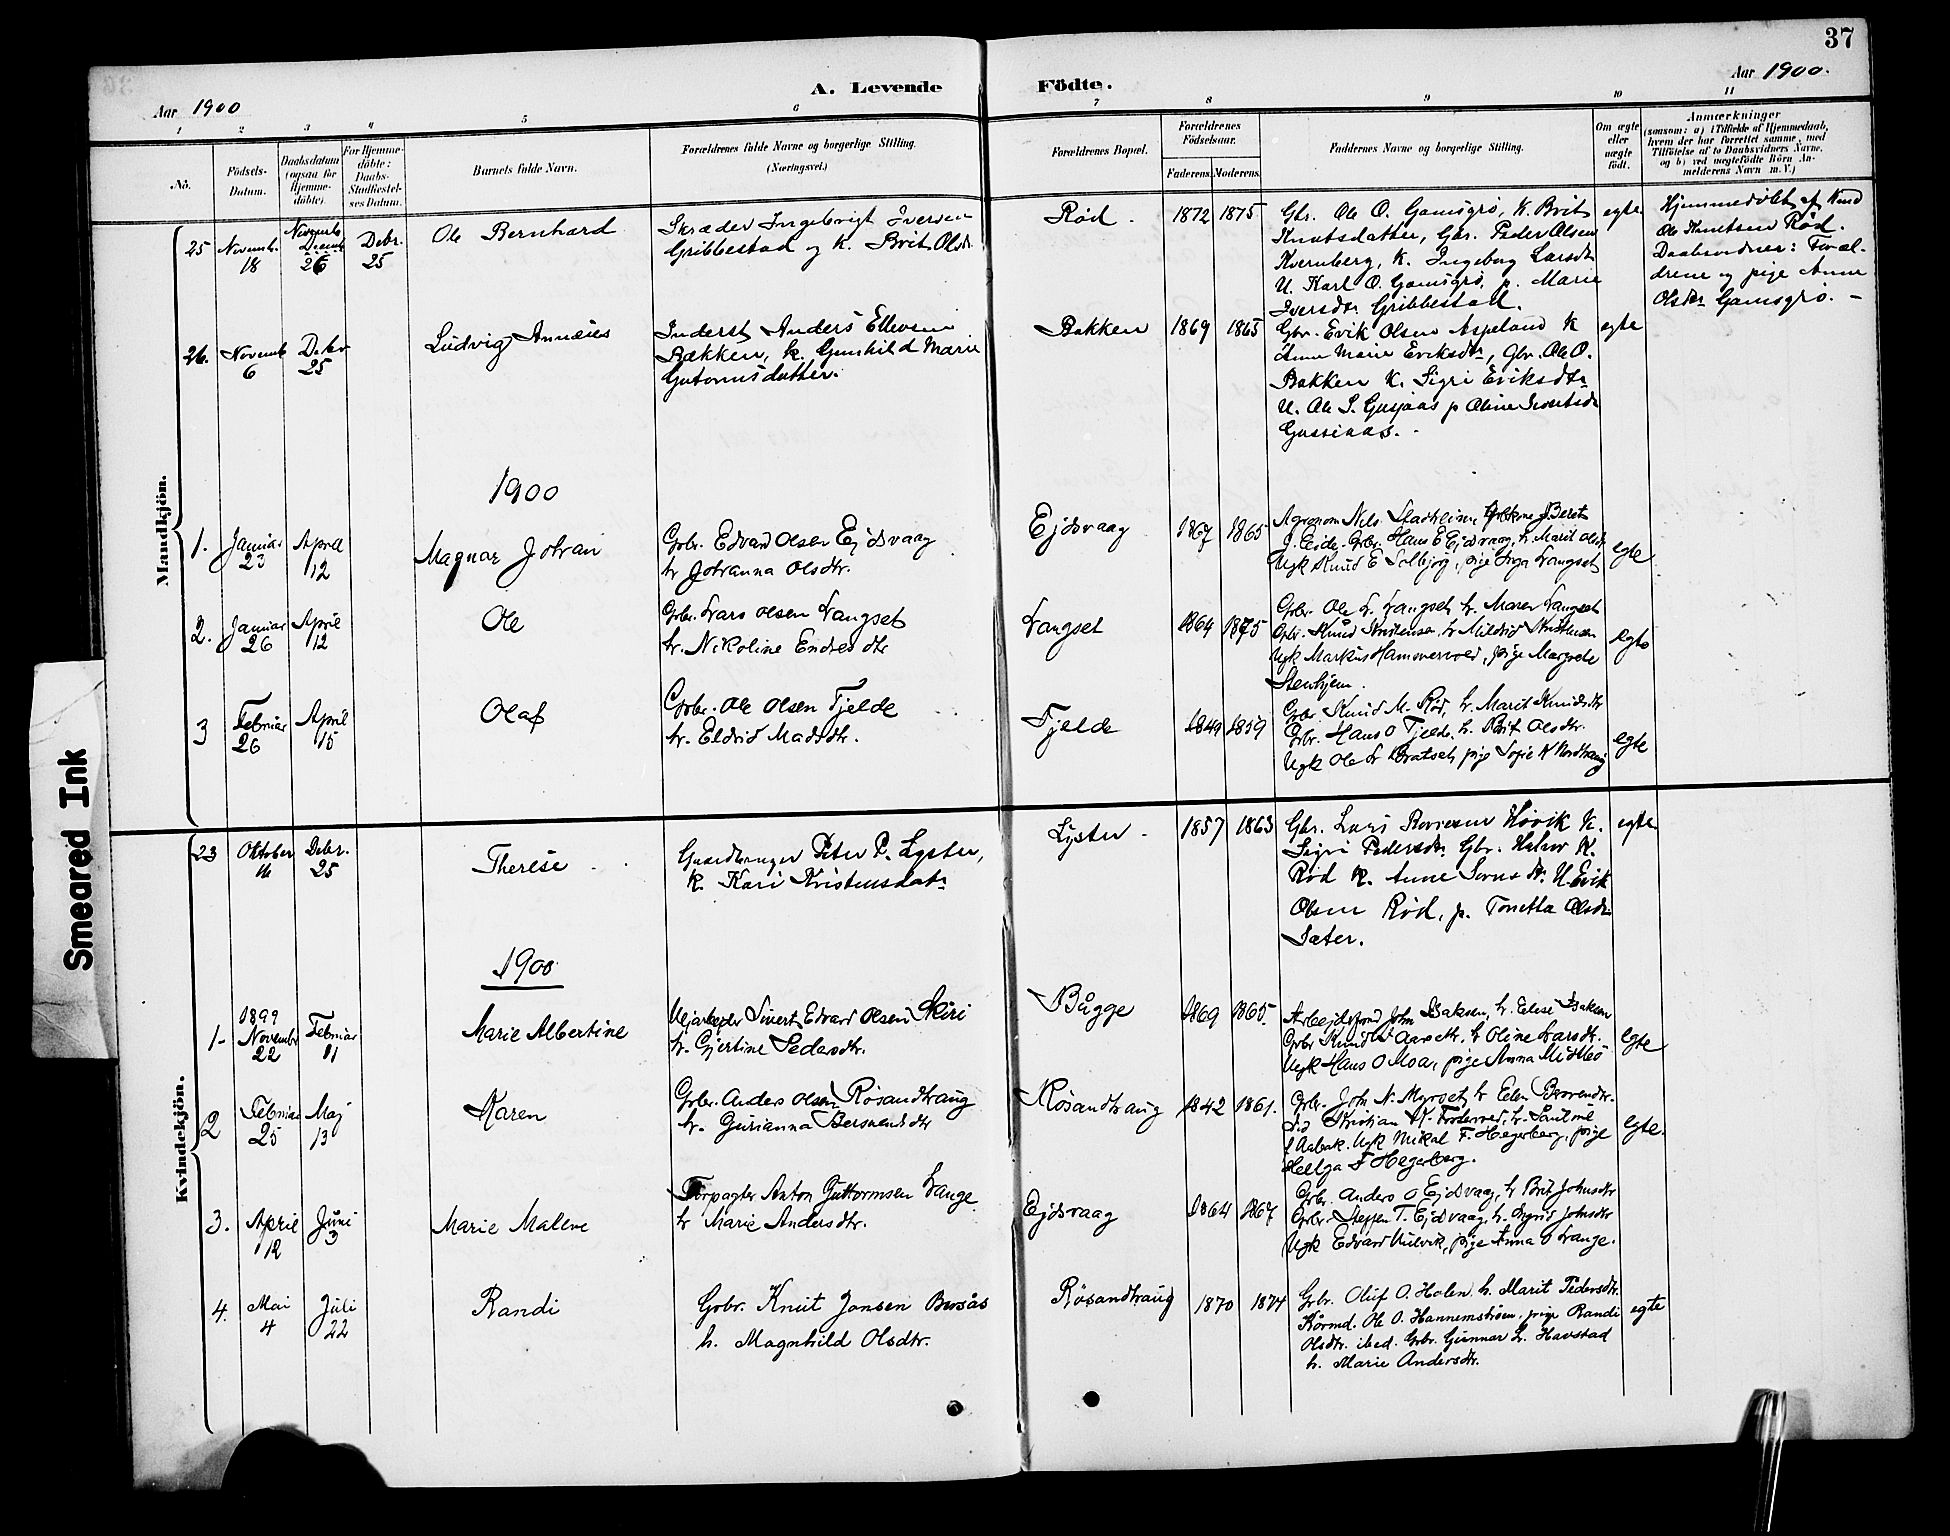 37
Aar 1900
A. Levende Födte.
Aar 1900.
1 2 3 4 5 6 7 8 9 10 11
No.
Födsels-Datum.
Daabsdatum (ogsaa for Hjemme-döbte).
For Hjemme-döbte: Daabs-Stadfæstel-ses Datum.
Barnets fulde Navn.
Forældrenes fulde Navne og borgerlige Stilling. (Næringsvei.)
Forældrenes Bopæl.
Forældrenes Födselsaar.
Faderens. Moderens.
Faddernes Navne og borgerlige Stilling.
Om ægte eller uægte födt.
Anmærkninger
(saasom: a) i Tilfælde af Hjemmedaab, hvem der har forrettet samme, med Tilföielse af to Daabsvidners Navne, og b) ved uægtefödte Börn Anmelderens Navn m. V.)
Mandkjön.
25 Novemb. 18
Novemb
Decemb 26
Debr. 25
Ole Bernhard
Skræder Ingebrigt Iversen
Gribbestad og K. Brit Olsdr
Rød.
1872 1875
Gbr. Ole O. Gamsgrø, K. Brit
Knutsdatter, Gbr. Peder Olsen
Kvernberg, K. Ingeborg Larsdtr
U. Karl O. Gamsgrø, p. Marie
Iversdtr Gribbestad.
egte
Hjemmedøbt af Knud
Ole Knutsen Rød.
Daabsvidner: Foræl-
drene og pige Anne
Olsdtr Gamsgrø. -
26. Novemb 6
Debr 25
Ludvig Annæus
Inderst Anders Ellevsen
Bakken, k. Gunhild Marie
Gutormsdatter.
Bakken
1869 1865
Gbr. Erik Olsen Aspeland K
Anne Marie Eriksdtr, Gbr. Ole O.
Bakken K. Sigri Eriksdtr
U. Ole S. Gusjaas p Oline
Gussiaas.
egte
1900
1. Januar 23
April 12
Magnar Johan
Grbr. Edvard Olsen Ejdsvaag
h. Johanna Olsdtr.
Ejdsvaag
1867 1865
Agronom Nils Stadheim, Beret
J. Eide. Grbr. Hans E Ejdsvaag, h. Marit Olsdtr
Ugk Knud E Solbjør, pige Inga Langset
egte
2. Januar 26
April 12
Ole
Grbr. Lars Olsen Langset
h. Nikoline Endresdtr
Langset
1864 1875
Grbr. Ole L. Langset, h. Maren Langset
Grbr. Knud Kristensen, h. Mildrid Kristensen
Ugk Markus Hammervold, pige Margrete
Stenhjem.
egte
3 Februar 26
April 15
Olaf
Grbr. Ole Olsen Fjelde
h. Eldrid Madsdtr.
Fjelde
1849 1859
Grbr. Knud M. Rød, h. Marit Knudsdtr
Grbr. Hans O Fjelde, h. Brit Olsdtr.
Ugk Ole L Bratset, pige Sofie K
egte
Kvindekjön.
23 Oktober
Debr. 25
Therése
Gaardbruger Peter P. Lyster,
k. Kari Kristensdatr
Lyster
1857 1863
Gbr. Lars Høvik K.
Sigri Pedersdtr. Gbr. K.
Rød K. Anne U. Erik
Olsen Rød, p. Tonetta Olsdtr
Sæter.
egte
1900
1- 1899 Novembr 22
Februar 11
Marie Albertine
Vejarbejder Sivert Edvard Olsen Skiri
h. Gjertine Pedersdtr.
Bugge
1869 1865.
Arbejdsfmd John Isaksen, h. Elise Isaksen
Grbr Knud h. Oline Larsdtr.
Ugk Hans O Moa, pige Anna Midtbø
egte
2 Februar 25
Maj 13
Karen
Grbr. Anders Olsen Røsandhaug
h. Gurianna Bersvendsdtr
Røsandhaug
1842 1861.
Grbr. John N. Myrset, h Elen
Kristian K.
Aabak. Ugk Mikal F. Hegerberg, pige
Helga F Hegerberg.
egte.
3. April 12
Juni 3
Marie Malene
Forpagter Anton Guttormsen Lange
h Marie Andersdtr.
Ejdsvaag
1864 1867
Grbr. Anders O Ejdsvaag, h Brit Johnsdtr
Grbr. Steffen T. Ejdsvaag, h. Sigrid Johnsdtr
Ugk Edvard Ulvik, pige Anna O Lange.
4. Mai 4
Juli 22
Randi
Grbr. Knut Jonsen Bersås
h. Magnhild Olsdtr.
Røsandhaug
1870 1874
Grbr. Oluf O. Holen h. Marit Pedersdtr.
Kårmd. Ole O. Hannemstrøen, pige Randi
Olsdtr. ibid. Grbr. Gunnar L. Havstad
h. Marie Andersdtr.
egte
Smeared Ink